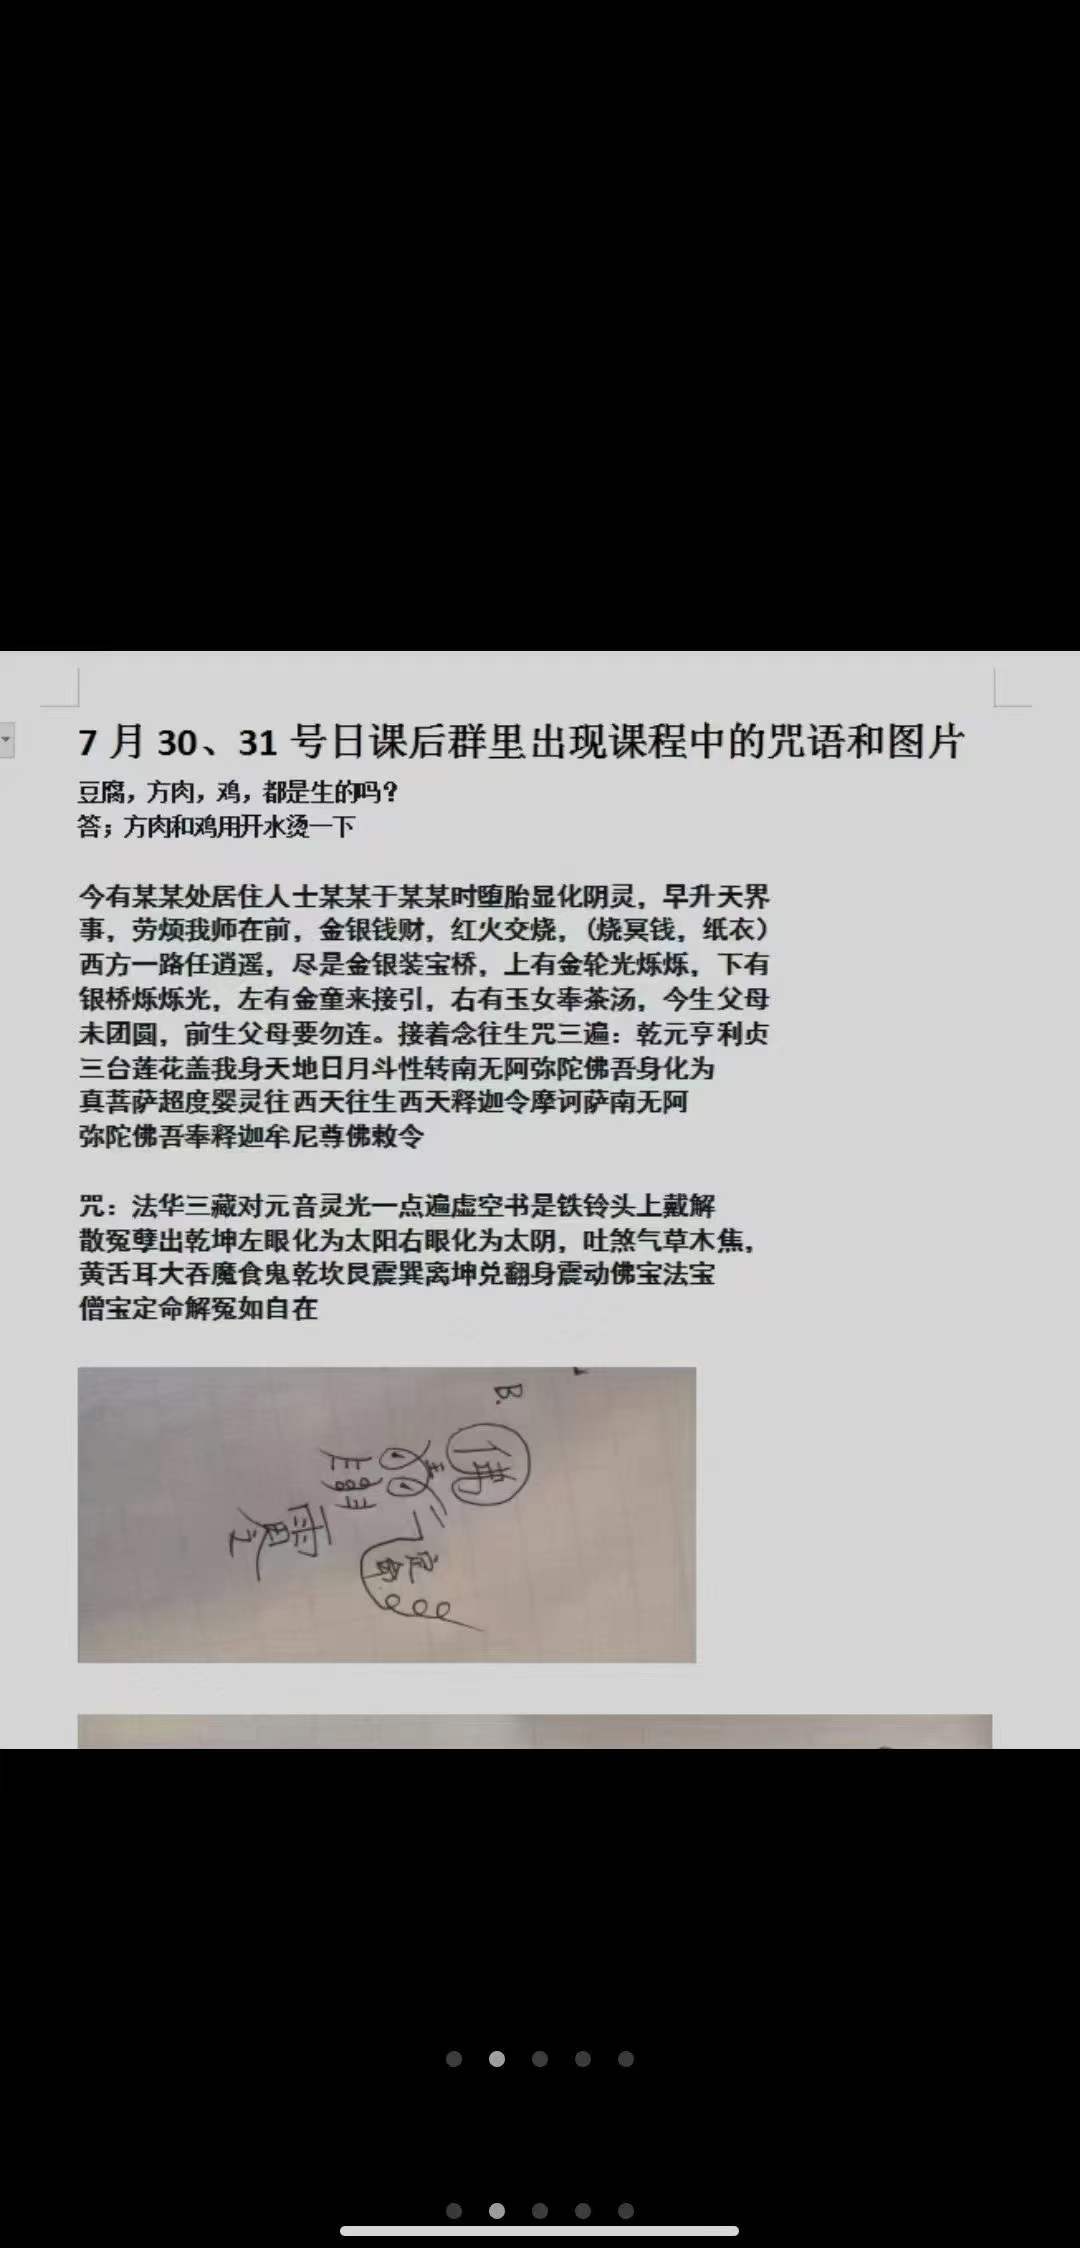 7月30、31号日课后群里出现课程中的咒语和图片
豆腐，方肉，鸡，都是生的吗？
答；方肉和鸡用开水烫一下
今有某某处居住人士某某于某某时堕胎显化阴灵，早升天界
事，劳烦我师在前，金银钱财，红火交烧，（烧冥钱，纸衣）
西方一路任逍遥，尽是金银装宝桥，上有金轮光烁烁，下有
银桥烁烁光，左有金童来接引，右有玉女奉茶汤，今生父母
未团圆，前生父母要勿连。接着念往生咒三遍：乾元亨利贞
三台莲花盖我身天地日月斗性转南无阿弥陀佛吾身化为
真菩萨超度婴灵往西天往生西天释迦令摩诃萨南无阿
弥陀佛吾奉释迦牟尼尊佛敕令
咒：法华三藏对元音灵光一点遍虚空书是铁铃头上戴解
散冤孽出乾坤左眼化为太阳右眼化为太阴，吐煞气草木焦，
黄舌耳大吞魔食鬼乾坎艮震巽离坤兑翻身震动佛宝法宝
僧宝定命解冤如自在
B.
佛